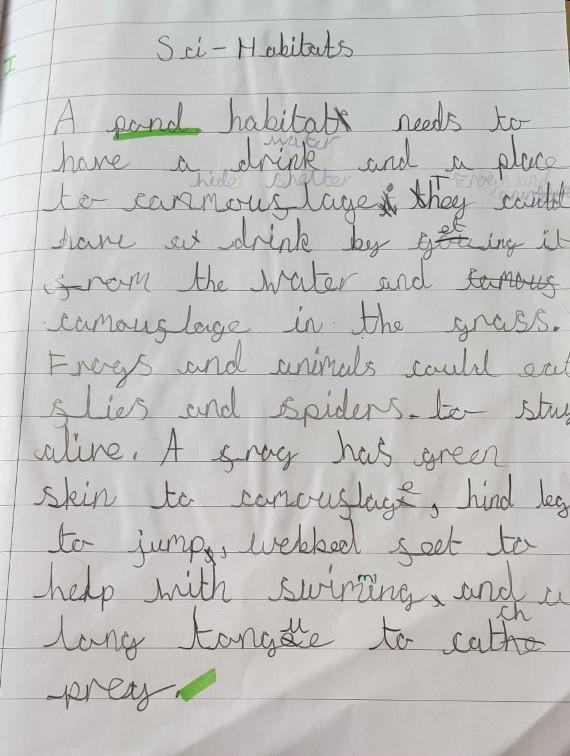 Sci-Habitats
A pond habitat needs to
water
have a drink and a place
hide shelter Frogs and
to canmouslage they could
have a drink by geting it
from the water and famous
camouslage in the grass.
Frogs and animals could eat
flies and spiders. to stay
alive. A frog has green
skin to camouflage, hind leg
to jump, webbed feet to
m
help with swiming, and a
ch
long tongue to cathe
prey.